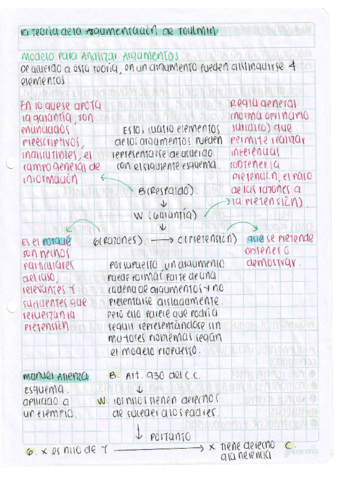 La teoría de la Argumentación de Toulmin
Modelo Para Analizar Argumentos
De acuerdo a esta teoría, en un argumento pueden distinguirse 4
elementos
En lo que se apoya
la garantía, son
enunciados
preescriptivos,
el
campo general de
información
Estos cuatro elementos
de los argumentos pueden
representarse de acuerdo
con el siguiente esquema.
Regla general
(norma o principio
jurídico) que
permite realizar
inferencias
obtener la
pretensión, el paso
de las razones a
la pretensión)
B (Respaldo)
W (Garantía)
G (Razones)
C (Pretensión)
Es el porque
son hechos
particulares
del caso,
relevantes y
suficientes que
refuerzan la
pretensión
que se pretende
obtener o
demostrar.
Por supuesto, un argumento
puede formar parte de una
cadena de argumentos y no
presentarse aisladamente.
Pero ello parece que podría
seguir representándose sin
mayores problemas según
el modelo propuesto.
Manuel Atienza
esquema
aplicado a
un ejemplo.
B. Art. 930 del C.C.
W. los hijos tienen derechos
de suceder a los padres.
Por tanto
G. X es hijo de Y
X tiene derecho
a la herencia
C.